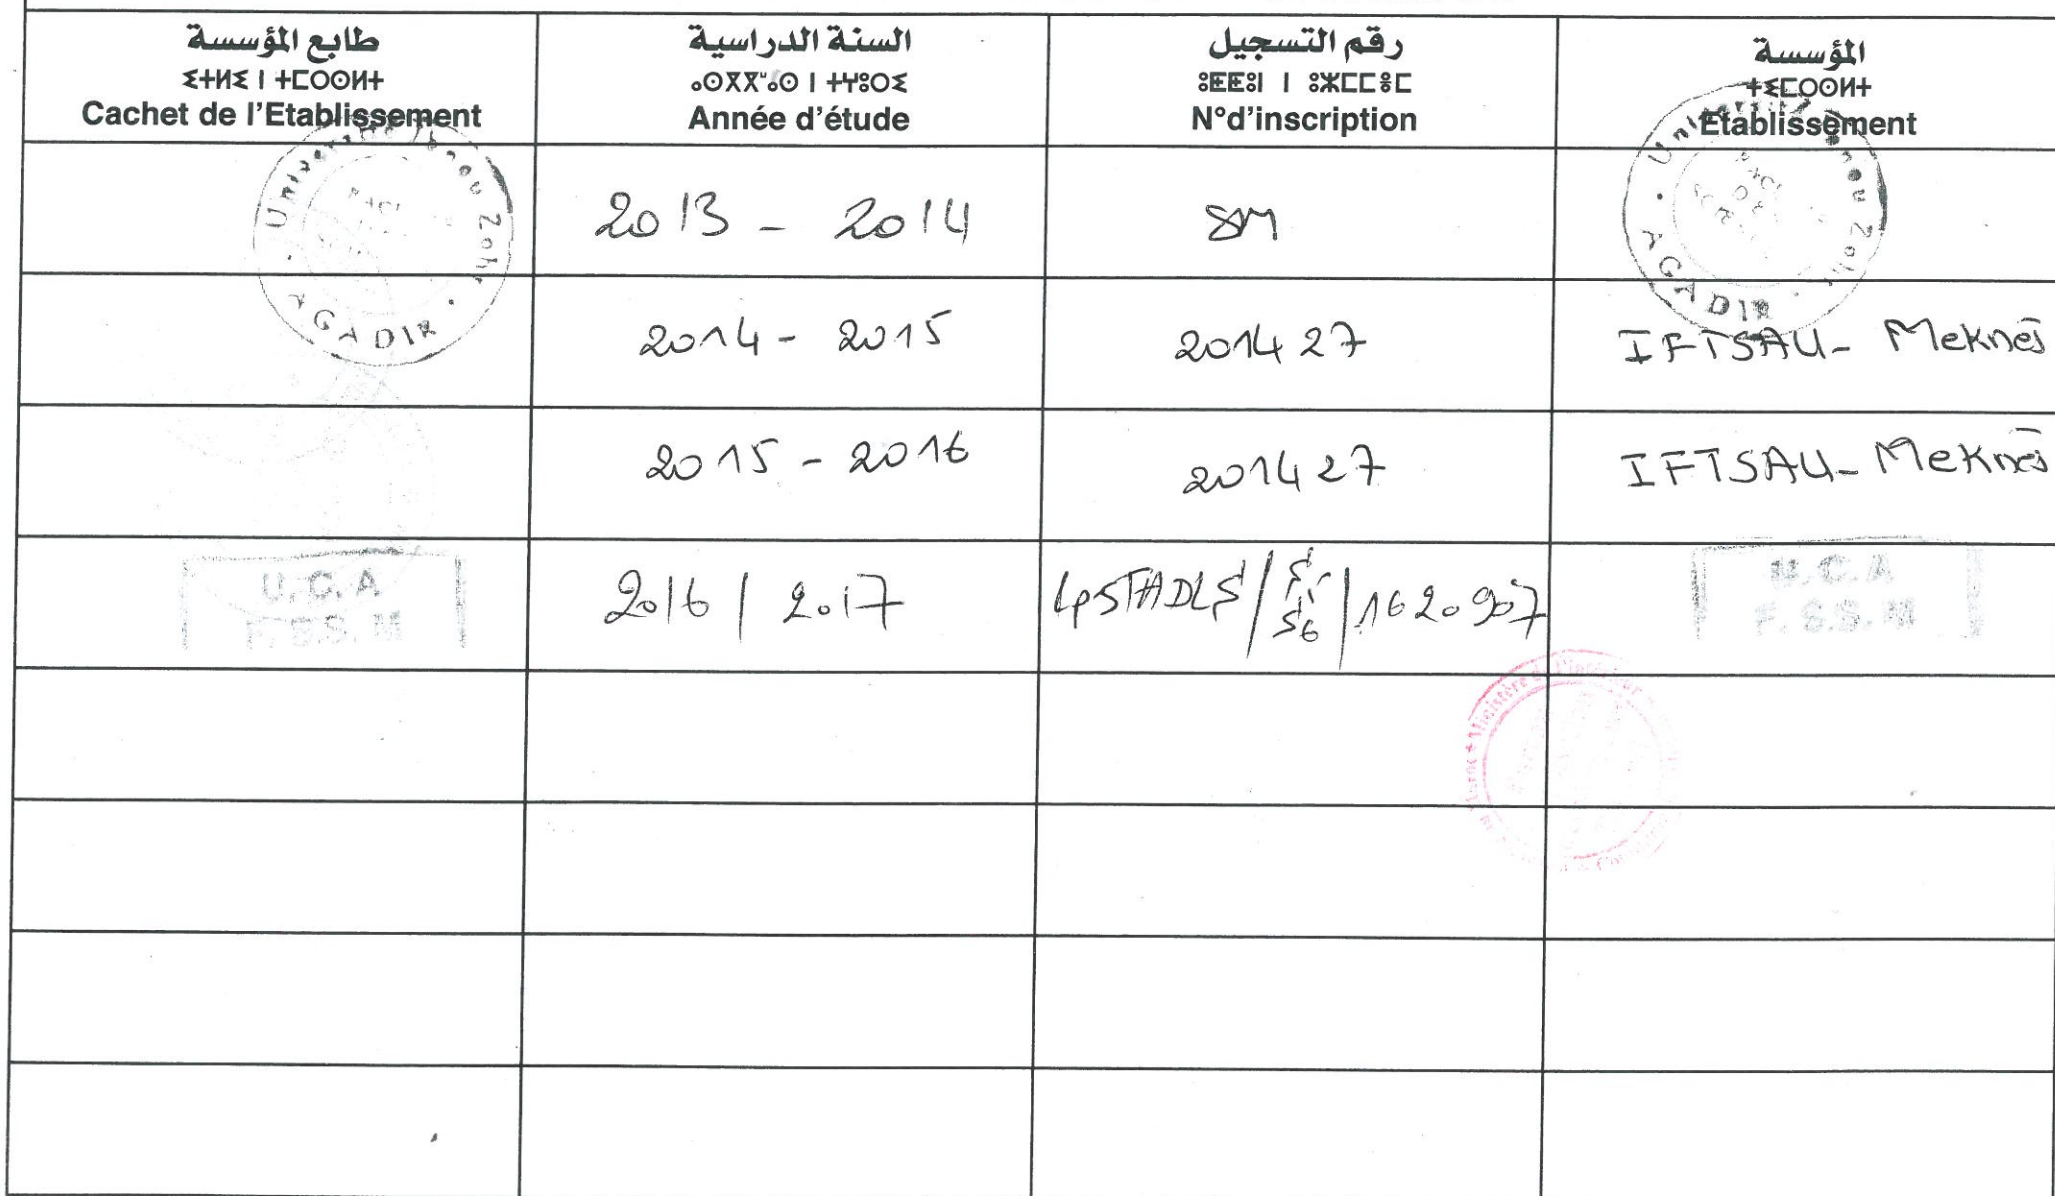 طابع المؤسسة
ⵉⵜⵍⵉ ⵏ ⵜⵎⵔⵙⵍⵜ
Cachet de l'Etablissement
السنة الدراسية
ⴰⵙⴳⴳⵯⴰⵙ ⵏ ⵜⵖⵓⵔⵉ
Année d'étude
رقم التسجيل
ⵓⵟⵟⵓⵏ ⵏ ⵓⵣⵎⵎⵓⵎ
N°d'inscription
المؤسسة
ⵜⵉⵎⵔⵙⵍⵜ
Etablissement
Université Ibnou Zohr
AGADIR
2013 - 2014
SM
Université Ibnou Zohr
AGADIR
2014 - 2015
201427
IFTSAU - Meknès
2015 - 2016
201427
IFTSAU - Meknès
U.C.A
F.S.S.M
2016 / 2017
1620907
U.C.A
F.S.S.M
Maroc * Ministère de